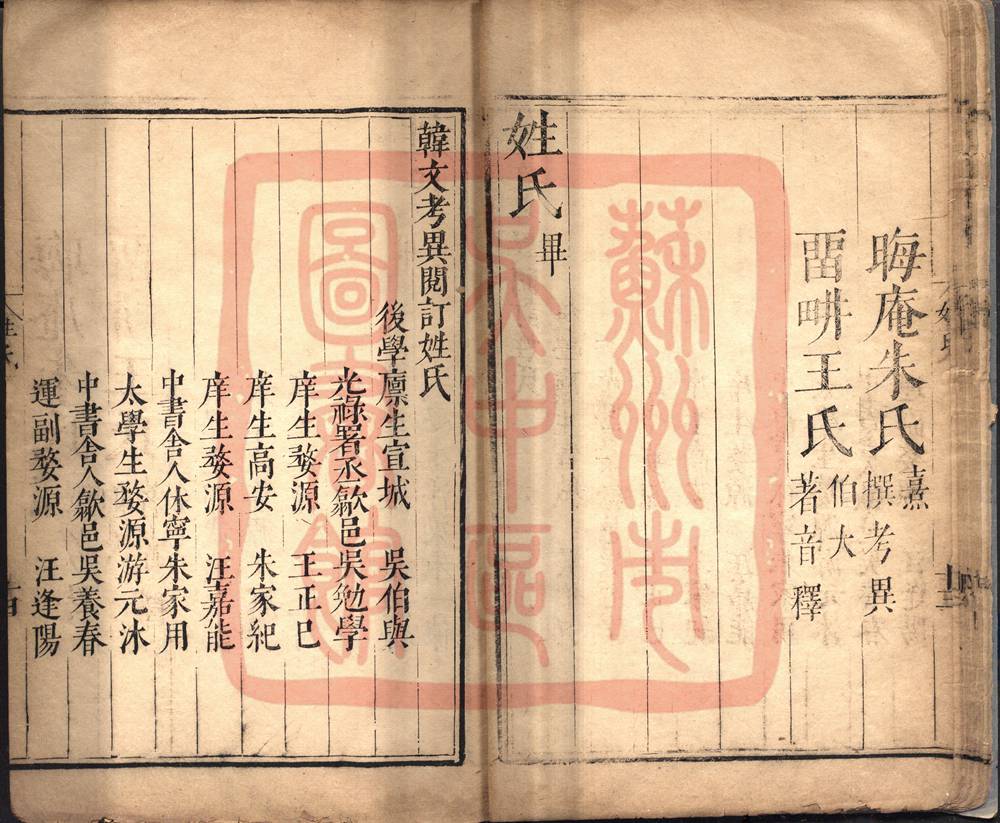 晦庵朱氏熹撰考異
畱畊王氏伯大著音釋
姓氏畢
韓文考異閱訂姓氏
後學廪生宣城 吳伯與
光祿署丞歙邑吳勉學
庠生婺源 王正巳
庠生高安 朱家紀
庠生婺源 汪嘉能
中書舍人休寧朱家用
太學生婺源游元沐
中書舍人歙邑吳養春
運副婺源 汪逢陽
姓氏
蘇州市
吴中區
圖書館